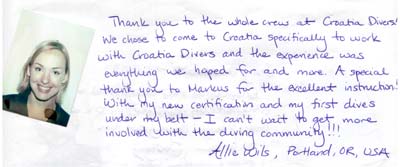 Thank you to the whole crew at Croatia Divers!
We chose to come to Croatia specifically to work
with Croatia Divers and the experience was
everything we hoped for and more. A special
thank you to Markus for the excellent instruction!
With my new certification and my first dives
under my belt – I can't wait to get more
involved with the diving community!!!
Allie Wils, Portland, OR, USA